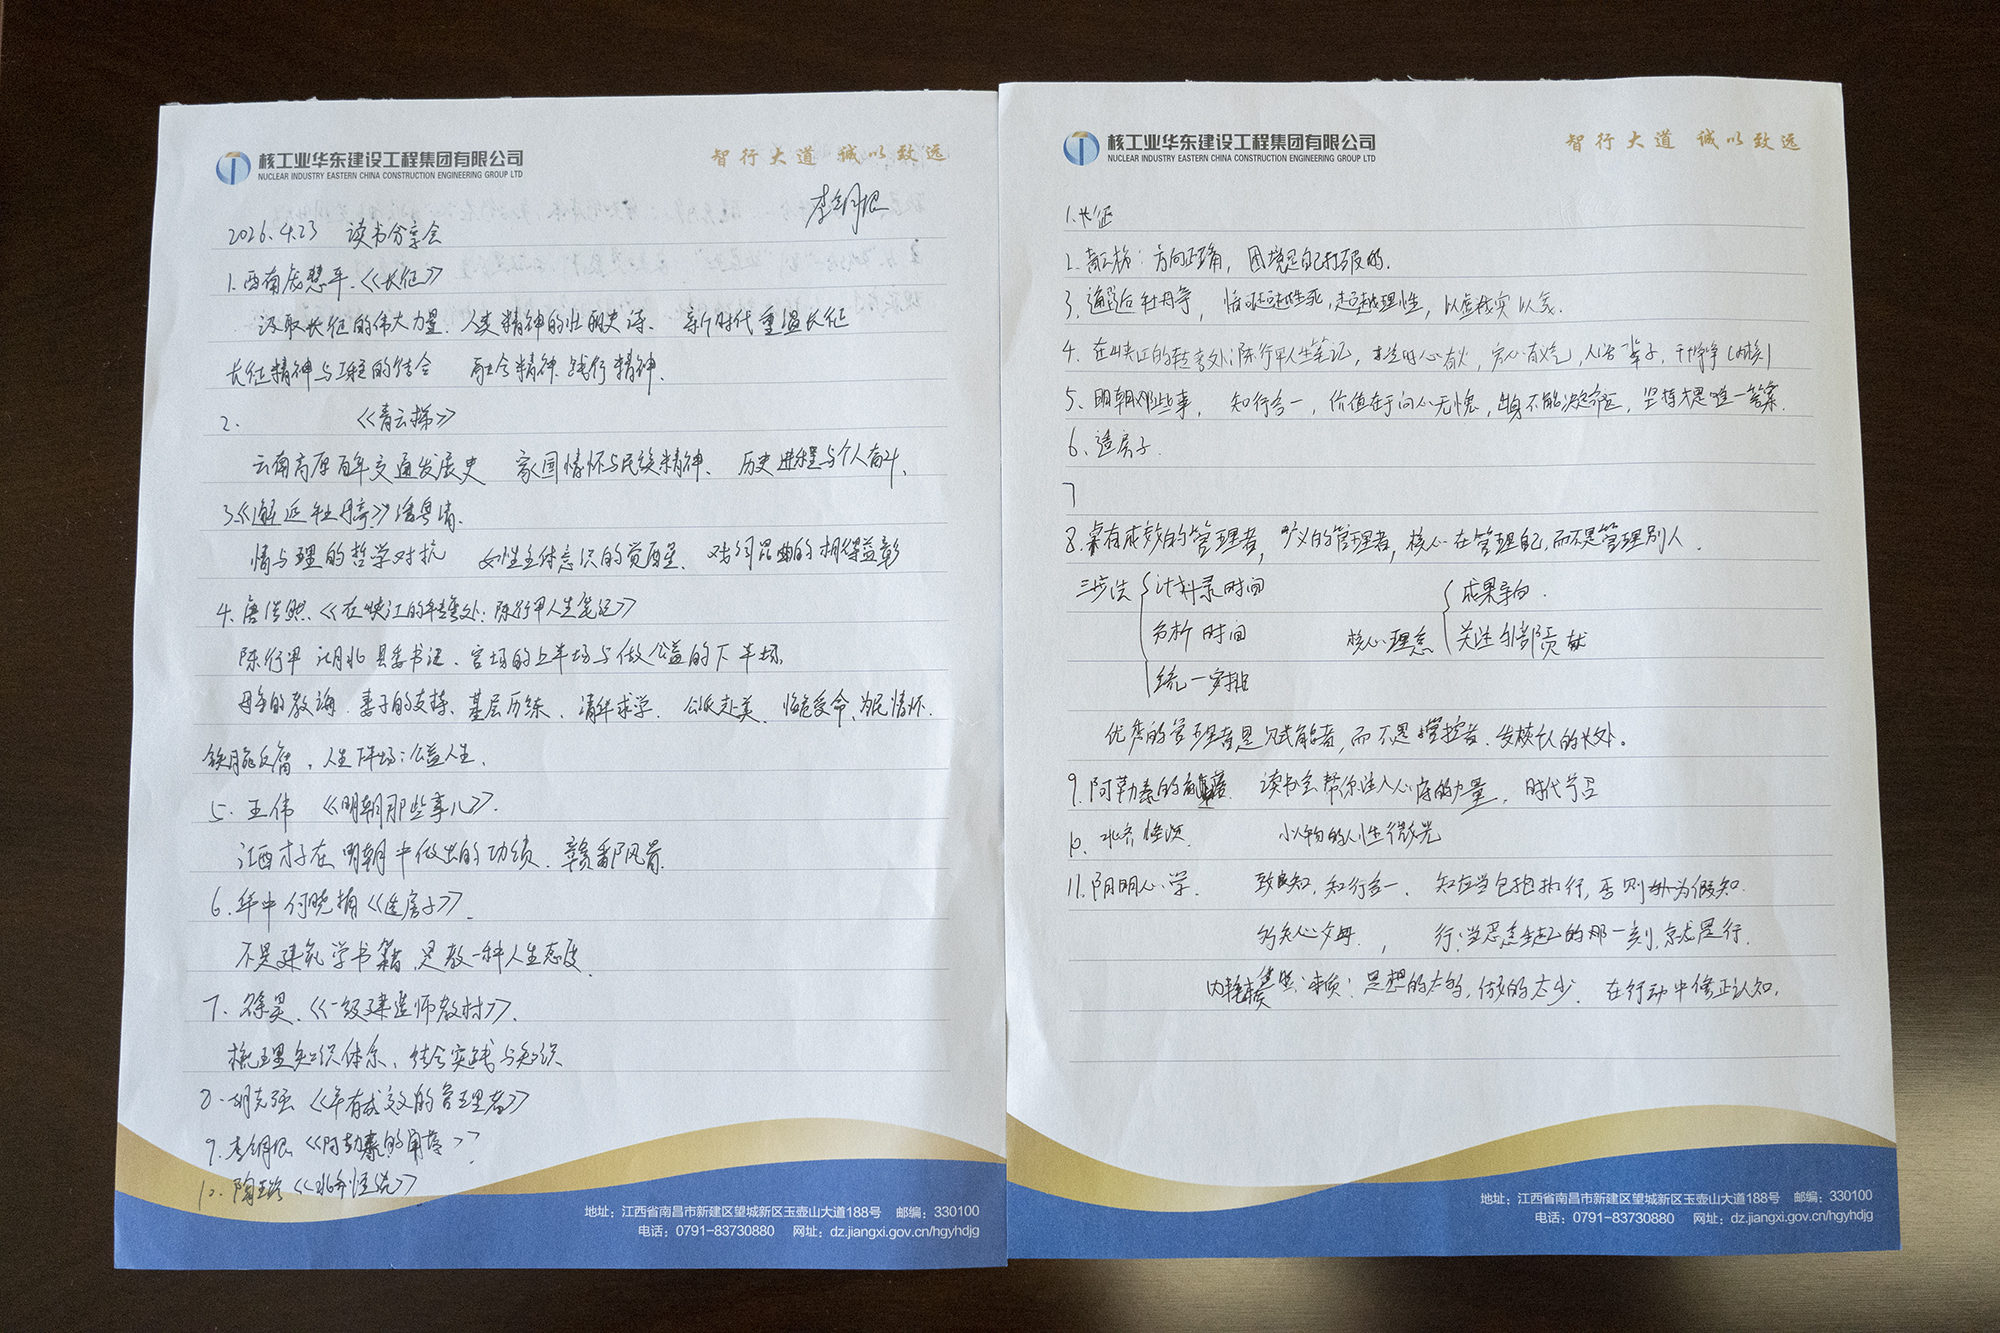 核工业华东建设工程集团有限公司
NUCLEAR INDUSTRY EASTERN CHINA CONSTRUCTION ENGINEERING GROUP LTD
智行大道 诚以致远
2026.4.23 读书分享会
1.西南 慧平.《长征》
汲取长征的伟大力量. 人类精神的壮丽史诗、 新时代重温长征
长征精神与工程的结合 融合精神.践行精神.
2. 《青云梯》
云南高原百年交通发展史 家国情怀与民族精神、 历史进程与个人奋斗、
3.《邂逅牡丹亭》 粤清.
情与理的哲学对抗 女性主体意识的觉醒、 戏词昆曲的相得益彰
4.唐 《在峡江的转弯处：陈行甲人生笔记》
陈行甲 湖北县委书记、官场的上半场与做公益的下半场.
母亲的教诲.妻子的支持、基层历练、清华求学. 公派赴美、临危受命、为民情怀.
铁腕反腐，人生下半场：公益人生.
5. 王伟 《明朝那些事儿》.
江西才子在明朝中做出的功绩. 赣鄱风骨.
6.华中 何晓娟《造房子》.
不是建筑学书籍 是教一种人生态度.
7. 徐昊.《一级建造师教材》.
梳理知识体系、结合实践与知识
8.胡克强 《卓有成效的管理者》
9.李 根 《阿勒泰的角落》
10.陶 《水浒 》
地址：江西省南昌市新建区望城新区玉壶山大道188号 邮编：330100
电话：0791-83730880 网址：dz.jiangxi.gov.cn/hgyhdjg
核工业华东建设工程集团有限公司
NUCLEAR INDUSTRY EASTERN CHINA CONSTRUCTION ENGINEERING GROUP LTD
智行大道 诚以致远
1.长征
2. 方向正确，困境是自己打破的.
3.邂逅牡丹亭， 情可超越生死,超越理性，以虚 实以 .
4.在峡江的转弯处:陈行甲人生笔记， 时心有火， 心有 ，人活一辈子，干干净净(内核)
5、明朝那些事， 知行合一，价值在于问心无愧，出身不能决定命运，坚持才是唯一答案.
6、造房子.
7
8.卓有成效的管理者，广义的管理者，核心在管理自己,而不是管理别人.
三步法 计划录时间 成果导向.
分析时间 核心理念 关注外部贡献
统一安排
优秀的管理者是 解者，而不是掌控者、发挥人的长处。
9.阿勒泰的角落 读书会帮你注入心底的力量， 时代号召
10、水浒 小人物的人性微光
11.阳明心学. 致良知,知行合一、 知应当包括行，否则 为假知.
行:当恶念生起的那一刻,就是行.
内耗 本质：思想的太多,做的太少. 在行动中修正认知,
地址：江西省南昌市新建区望城新区玉壶山大道188号 邮编：330100
电话：0791-83730880 网址：dz.jiangxi.gov.cn/hgyhdjg